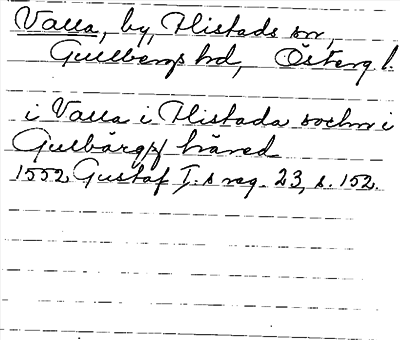 Valla, by, Flistads sn,
Gullbergs hd, Österg l.
i Valla i Flistada sochn i
Gulbärgz häred
1552 Gustaf I:s reg. 23, s. 152.